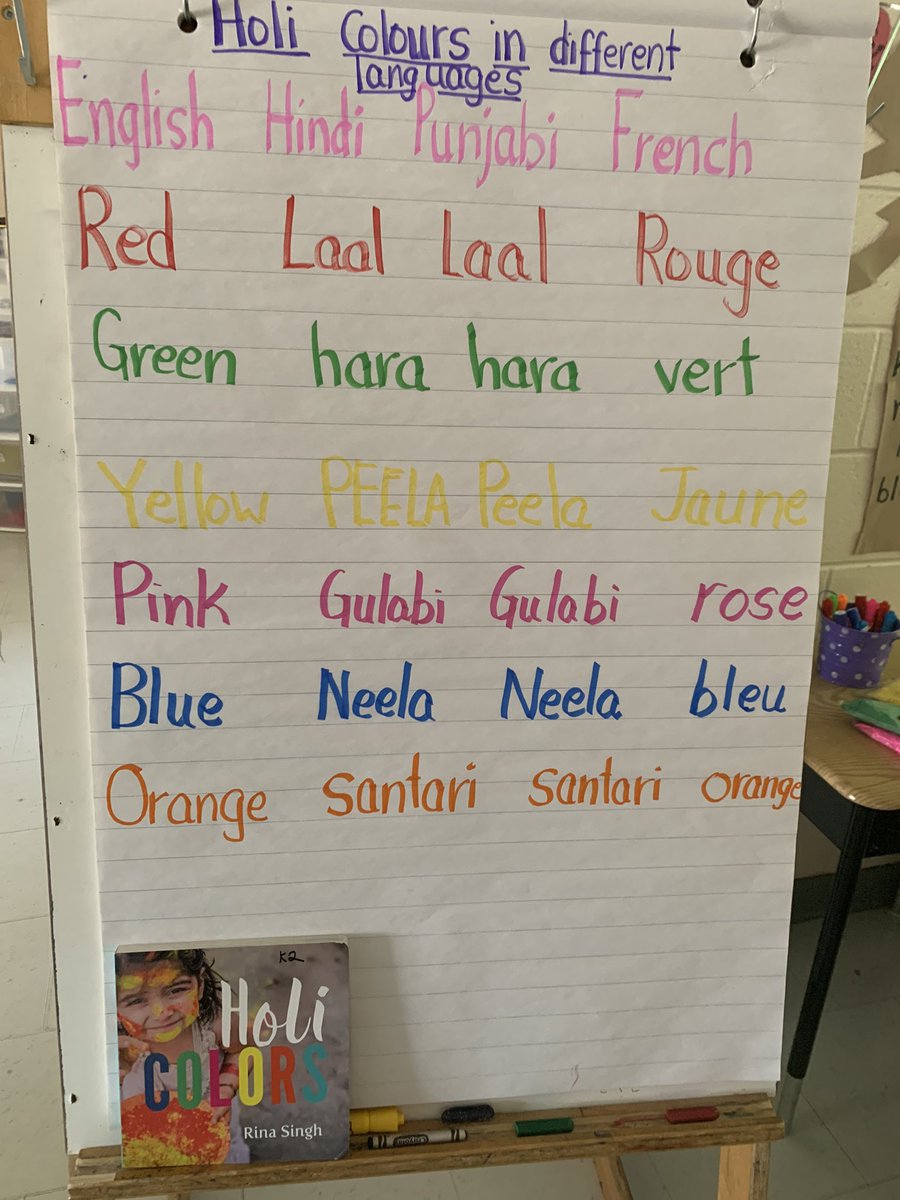 Holi Colours in different
languages
English Hindi Punjabi French
Red Laal Laal Rouge
Green hara hara vert
Yellow PEELA Peela Jaune
Pink Gulabi Gulabi rose
Blue Neela Neela bleu
Orange santari santari orange
K2
Holi
COLORS
Rina Singh
Crayola